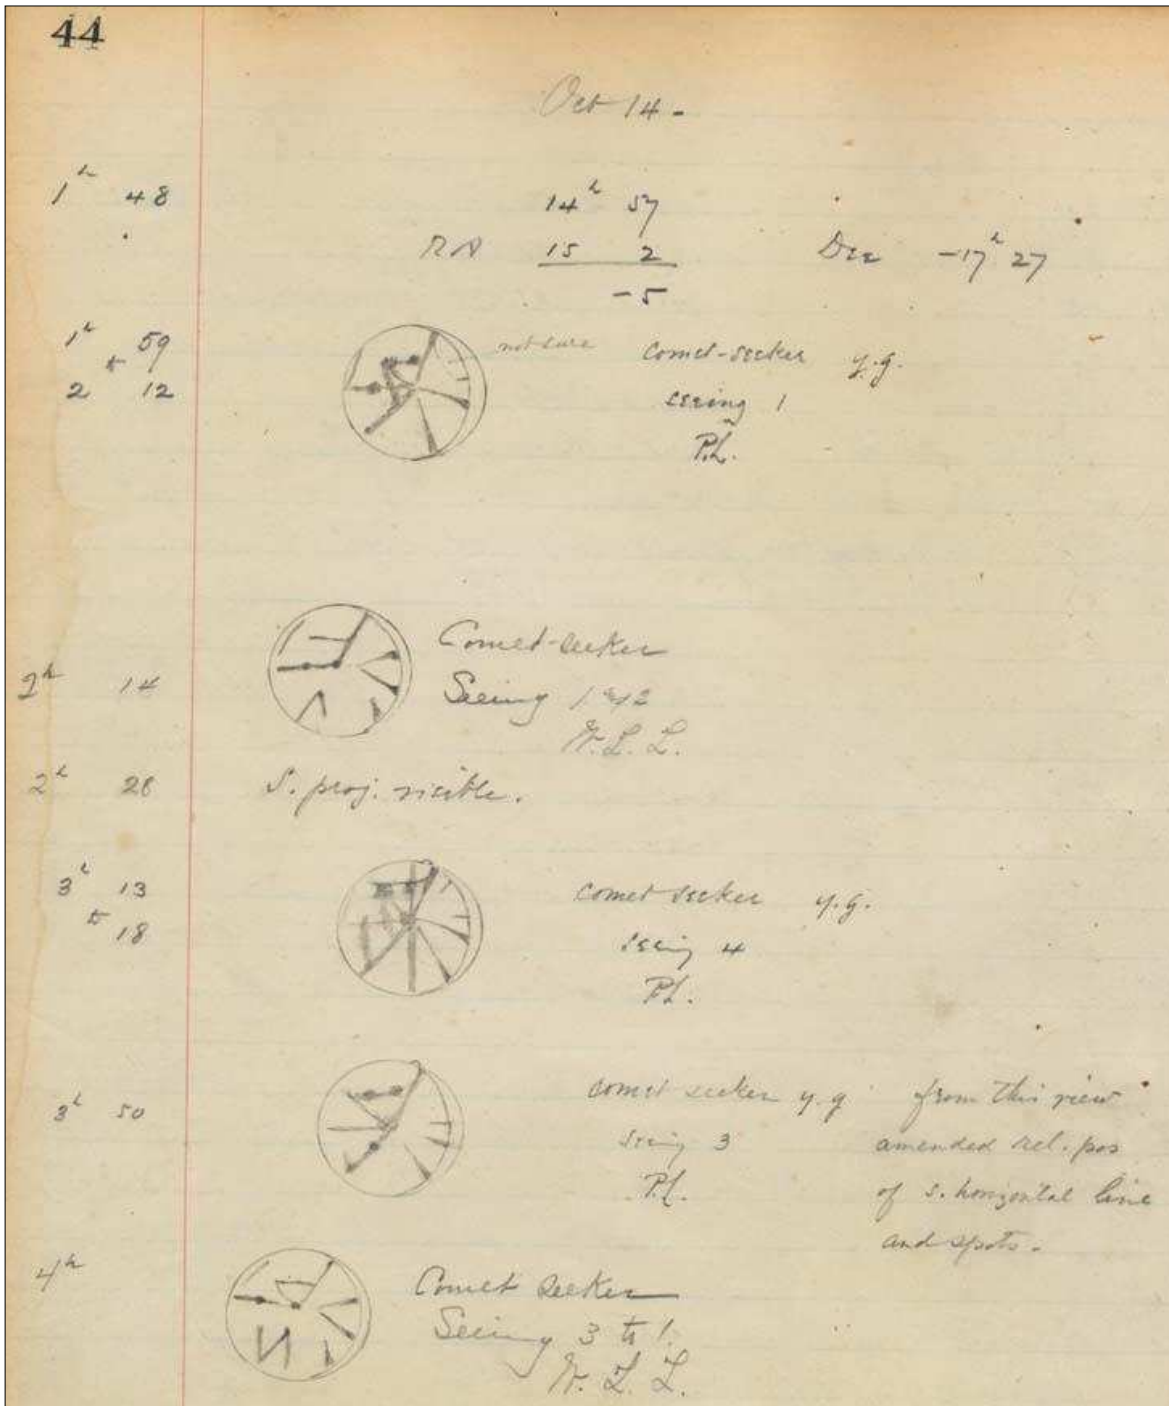 44
Oct 14 -
1h 48
14h 57
RA 15 2 Dec -17h 27
-5
1h 59
to
2 12
not sure comet-seeker y.g.
seeing 1
P.L.
2h 14
Comet-seeker
Seeing 1
W. L. L.
2h 28 S. proj. visible.
3h 13
to 18
comet seeker y.g.
seeing 4
P.L.
3h 50
comet seeker y.g from this view
seeing 3 amended rel. pos
P.L. of s. horizontal line
and spots.
4h
Comet Seeker
Seeing 3 to 1.
W. L. L.